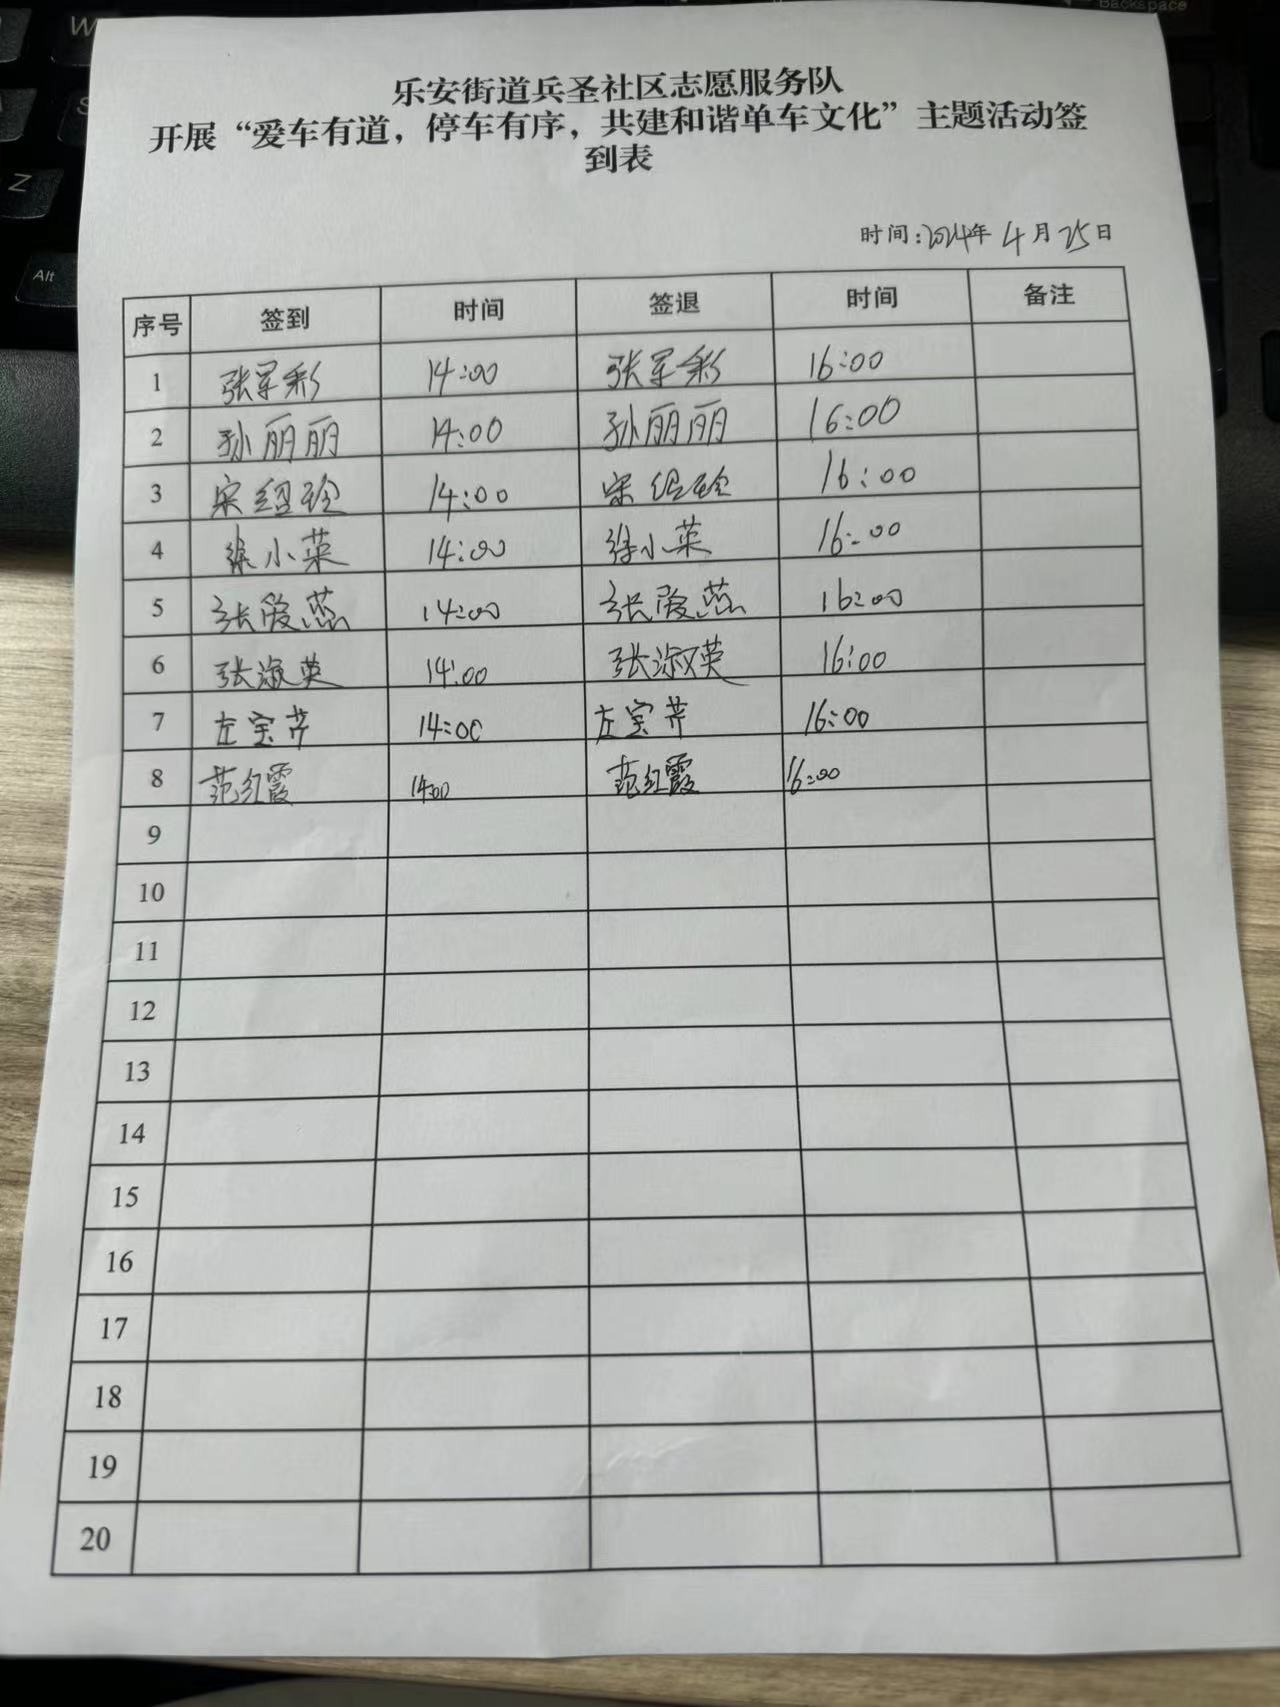 乐安街道兵圣社区志愿服务队
开展“爱车有道，停车有序，共建和谐单车文化”主题活动签
到表
时间:2024年 4月25日
序号 签到 时间 签退 时间 备注
1 张军彩 14:00 张军彩 16:00
2 孙丽丽 14:00 孙丽丽 16:00
3 宋绍玲 14:00 宋绍玲 16:00
4 徐小菜 14:00 徐小菜 16:00
5 张爱燕 14:00 张爱燕 16:00
6 张淑英 14:00 张淑英 16:00
7 左宝芹 14:00 左宝芹 16:00
8 范红霞 14:00 范红霞 16:00
9
10
11
12
13
14
15
16
17
18
19
20
W
Z
Alt
Backspace